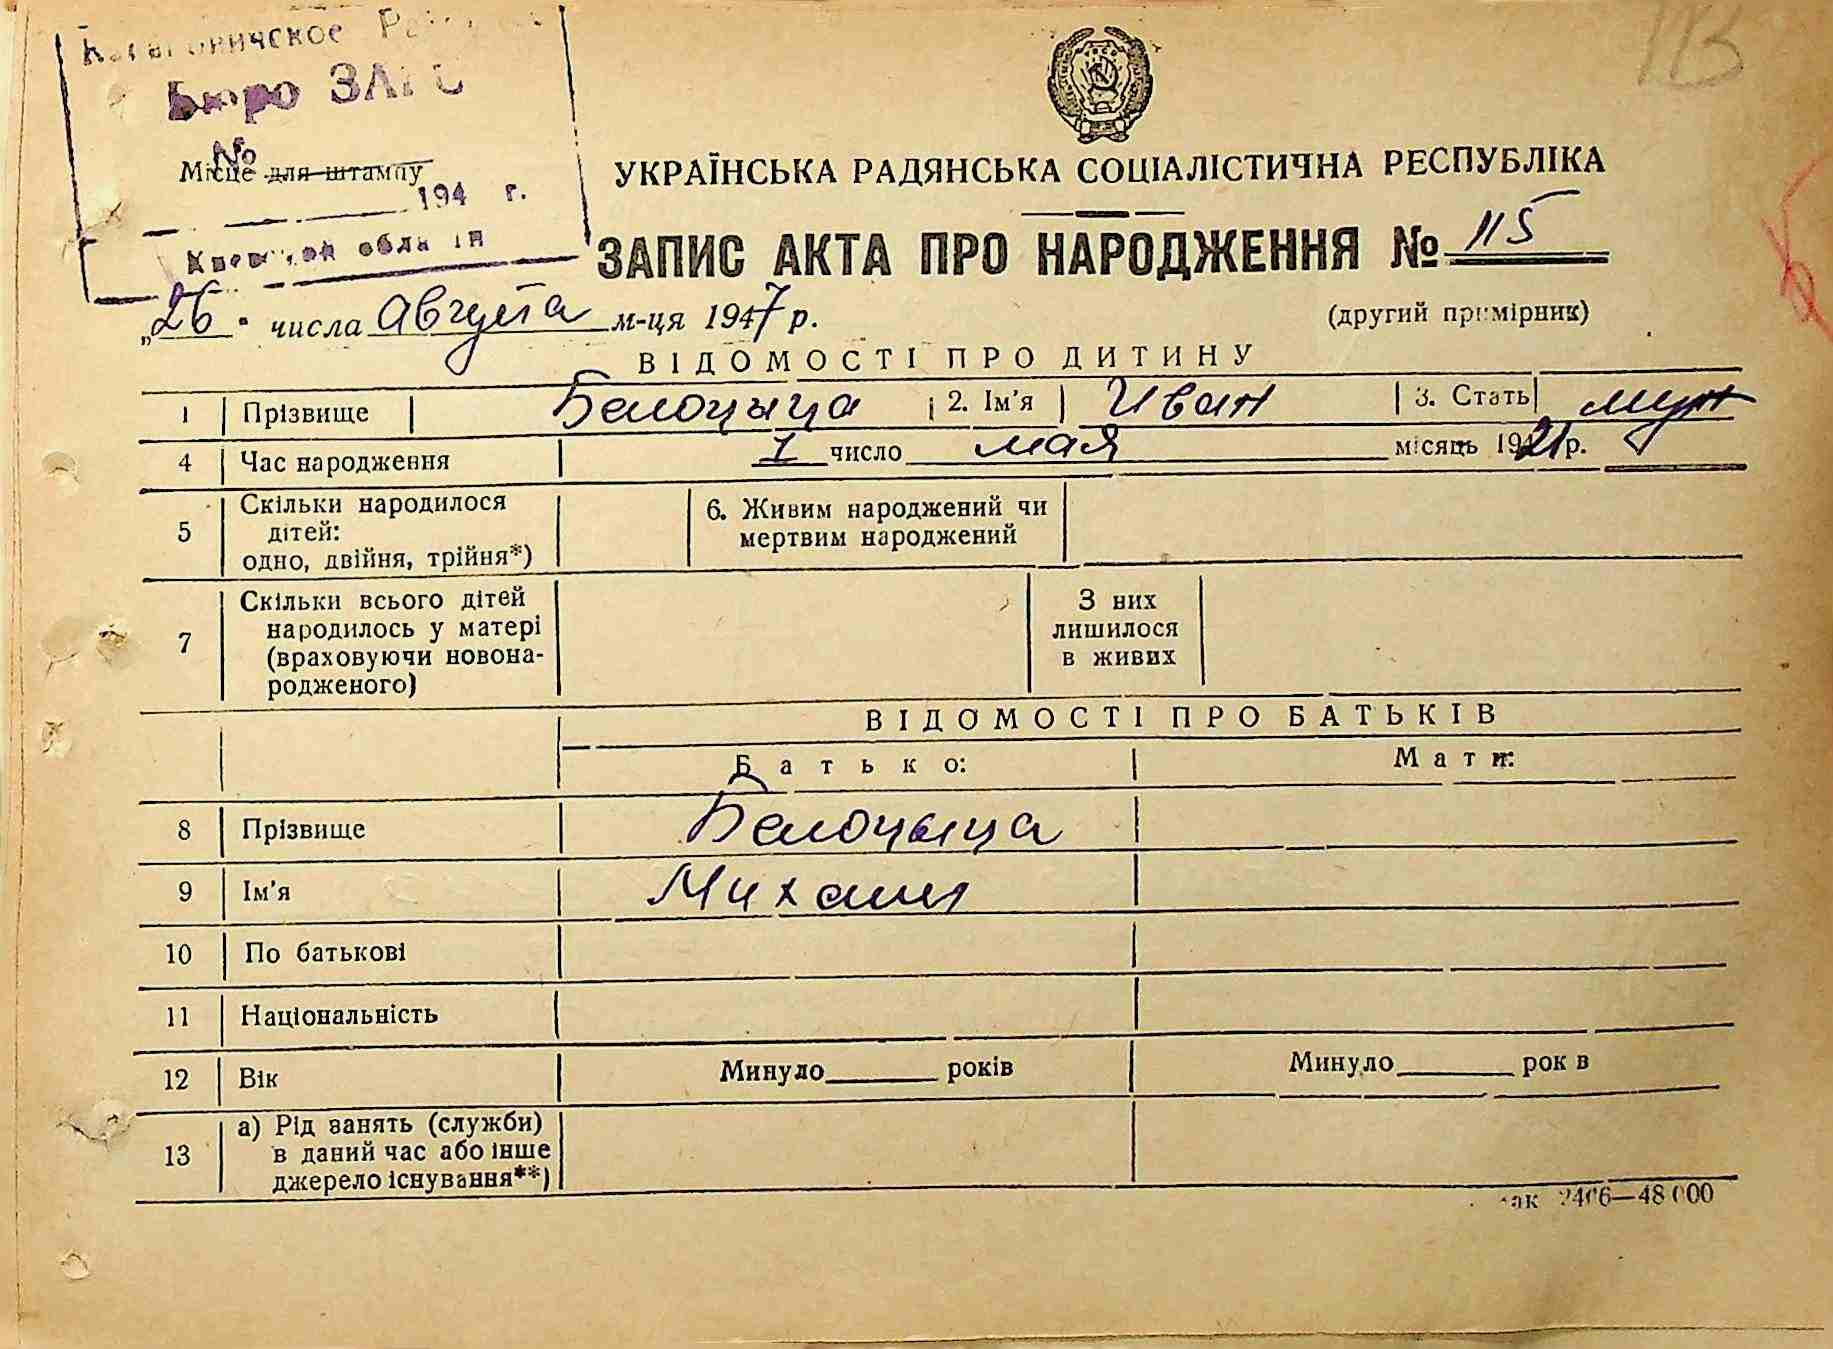 113
Бюро ЗАГС
№
Місце для штампу
194 г.
УКРАЇНСЬКА РАДЯНСЬКА СОЦІАЛІСТИЧНА РЕСПУБЛІКА
ЗАПИС АКТА ПРО НАРОДЖЕННЯ № 115
„26" числа Августа м-ця 1947 р.
(другий примірник)
ВІДОМОСТІ ПРО ДИТИНУ
1 Прізвище Белоцыца 2. Ім'я Иван 3. Стать муж
4 Час народження 1 число мая місяць 1921 р.
5 Скільки народилося
дітей:
одно, двійня, трійня*)
6. Живим народжений чи
мертвим народжений
7 Скільки всього дітей
народилось у матері
(враховуючи новона-
родженого)
З них
лишилося
в живих
ВІДОМОСТІ ПРО БАТЬКІВ
Батько: Мати:
8 Прізвище Белоцыца
9 Ім'я Михаил
10 По батькові
11 Національність
12 Вік Минуло років Минуло рок в
13 а) Рід занять (служби)
в даний час або інше
джерело існування**)
зак 2406—48000